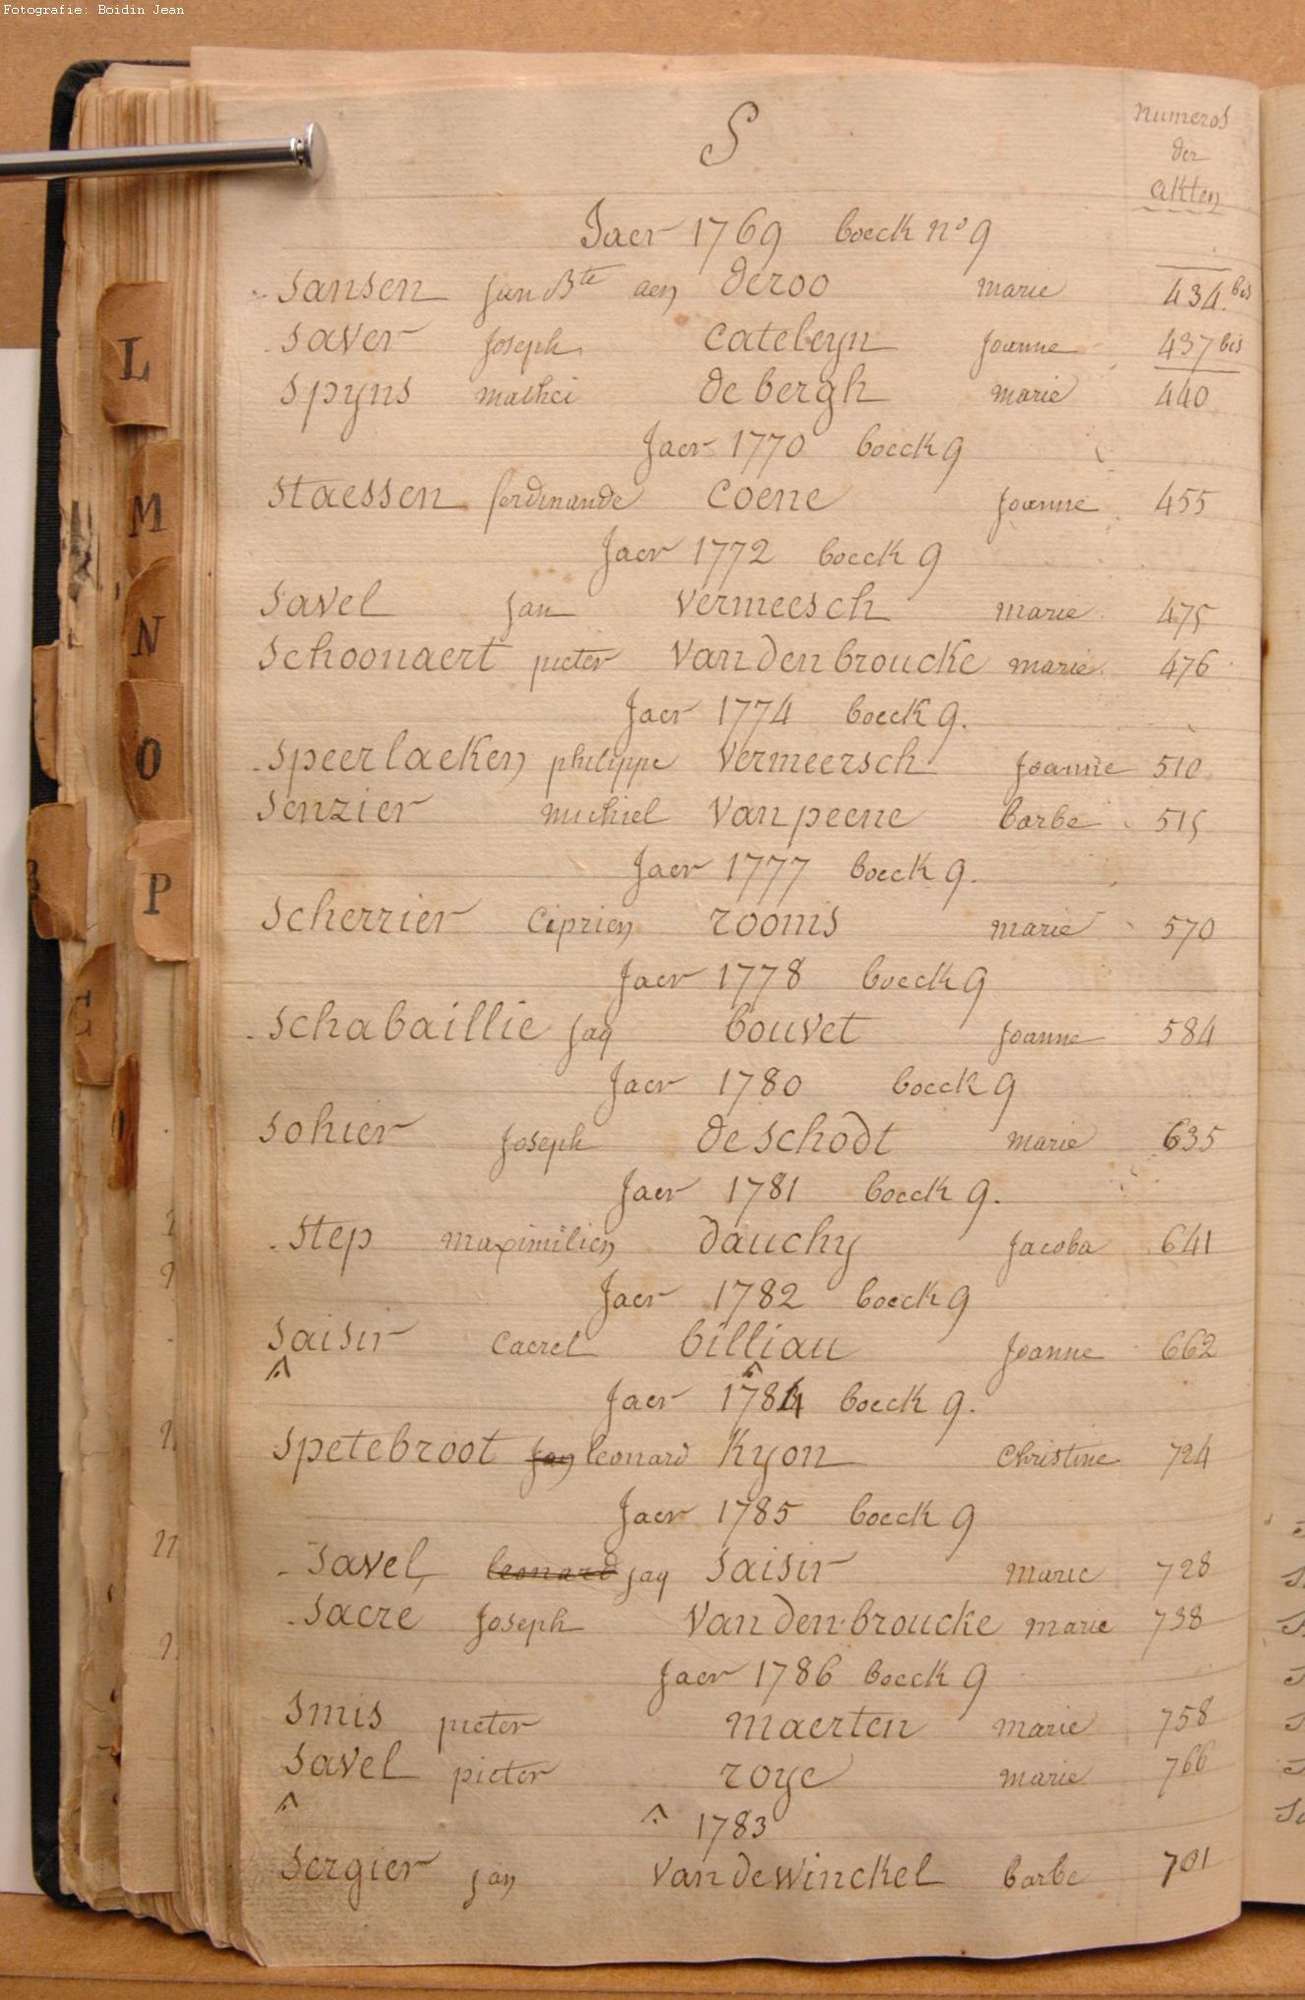 Fotografie: Boidin Jean
S
numeros
der
akten
Jaer 1769 boeck no 9
sansen jan Bte aen deroo marie 434 bis
saver joseph catebeyn joanne 437 bis
spyns mathei de bergh marie 440
Jaer 1770 boeck 9
staessen ferdinande coene joanne 455
Jaer 1772 boeck 9
savel jan vermeesch marie 475
schoonaert pieter vandenbroucke marie 476
Jaer 1774 boeck 9.
speerlaeken philippe vermeersch joanne 510
senzier michiel vanpeene barbe 515
Jaer 1777 boeck 9.
scherrier Ciprien rooms marie 570
Jaer 1778 boeck 9
schabaillie jaq bouvet joanne 584
Jaer 1780 boeck 9
sohier joseph deschodt marie 635
Jaer 1781 boeck 9.
step maximilien dauchy jacoba 641
Jaer 1782 boeck 9
saisir Caerel billiau joanne 662
Jaer 1784 boeck 9.
spetebroot jan leonard kyon christine 724
Jaer 1785 boeck 9
savel leonard jaq saisir marie 728
sacre joseph vanden broucke marie 738
Jaer 1786 boeck 9
smis pieter maerten marie 758
savel pieter roye marie 766
1783
sergier jan vandewinckel barbe 701
L
M
N
O
P